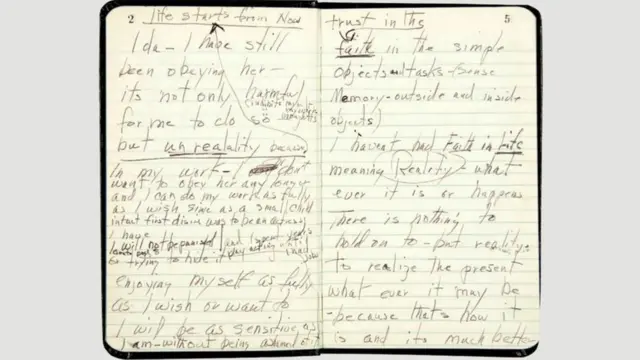 2 life starts from Now
Ida - I have still
been obeying her -
its not only harmful
for me to do so
but unreality because
In my work - I don't
want to obey her any longer
and I can do my work as fully
as I wish since as a small child
intact first desire was to be an actress
I have
I will not be punished and I spent years
so trying to hide it play acting until I had
enjoying myself as fully
as I wish or want to
I will be as sensitive as
I am - without being ashamed of it
5
trust in the
faith in the simple
Objects and tasks - (Sense
Memory - outside and inside
objects)
I haven't had Faith in Life
meaning Reality - what
ever it is or happens
There is nothing to
hold on to - but reality
To realize the present
what ever it may be
- because thats how it
is and its much better